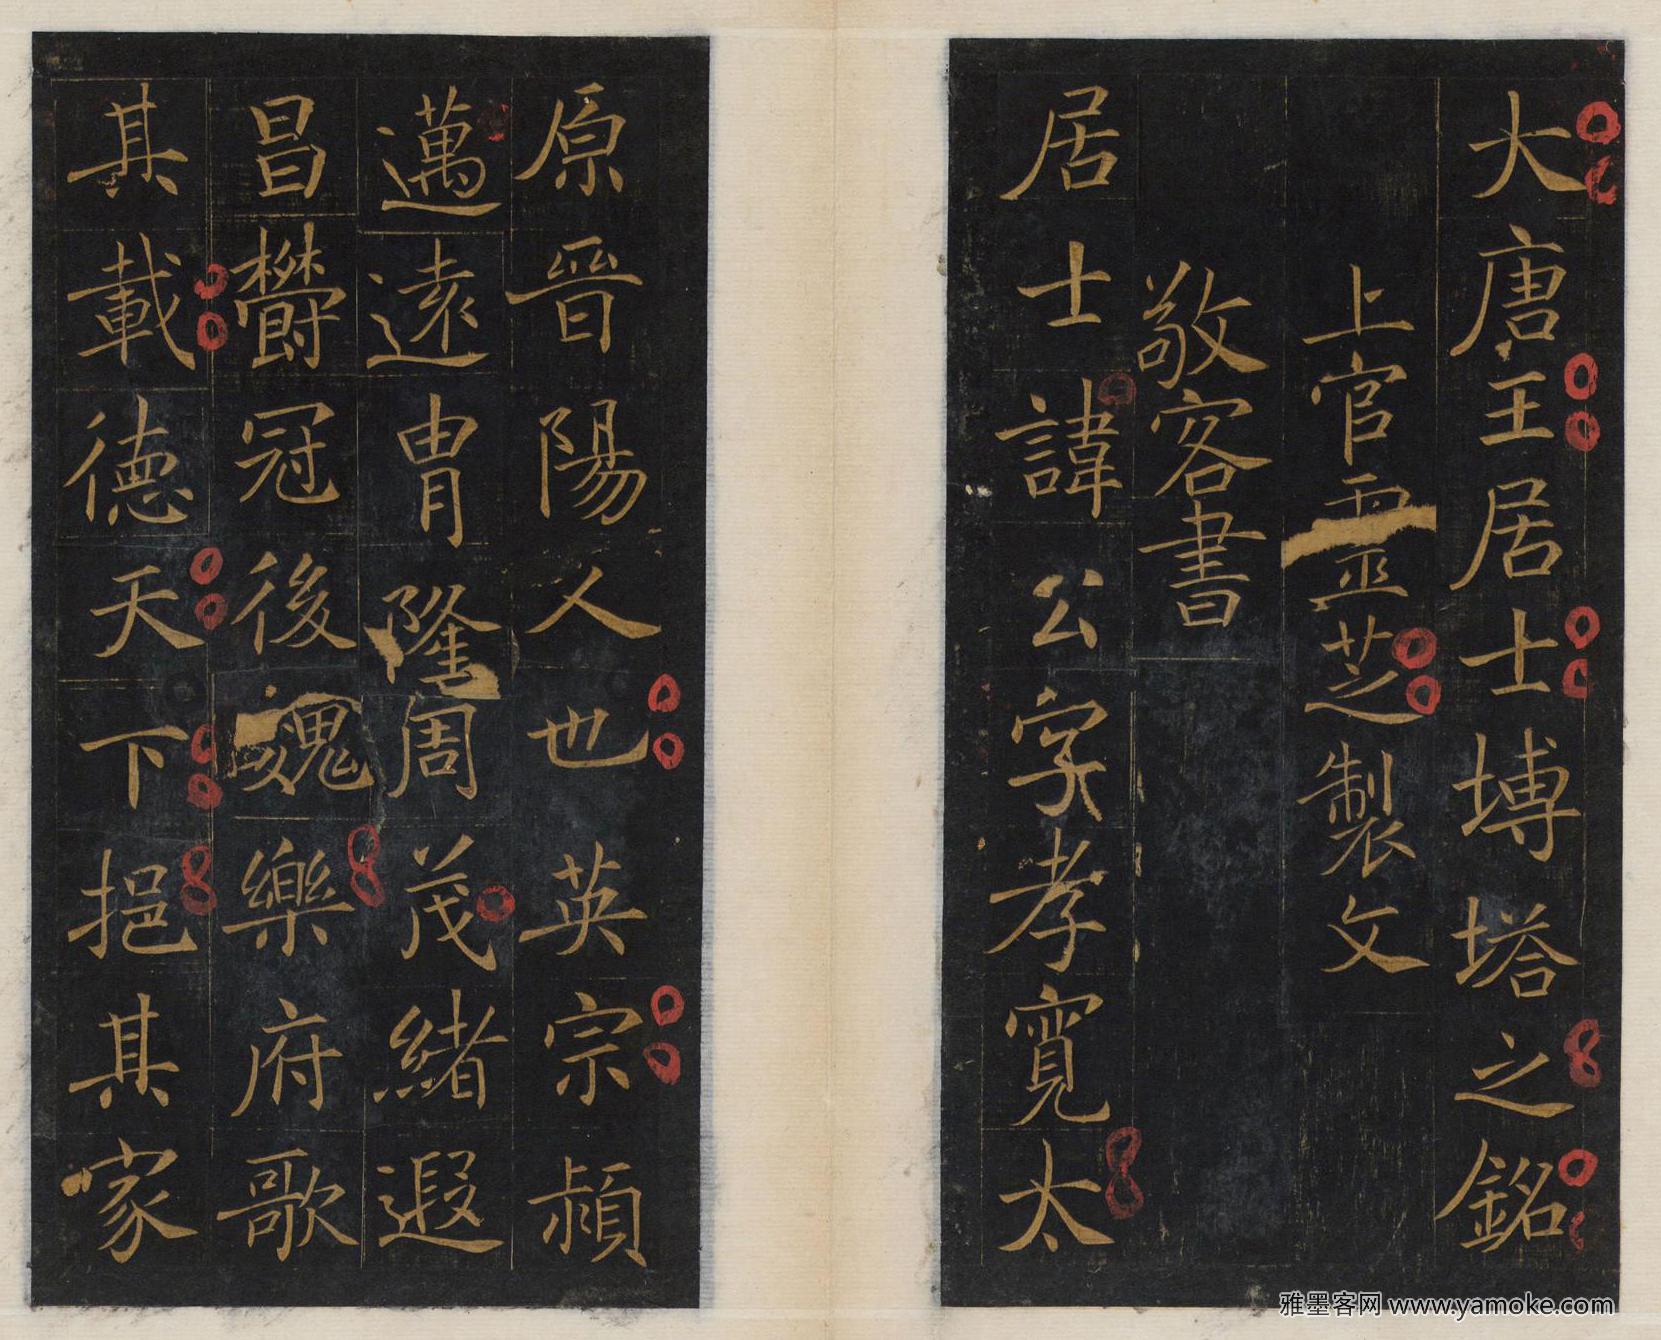 大唐王居士塼塔之銘
上官靈芝製文
敬客書
居士諱公字孝寬太
原晉陽人也英宗穎
邁遠胄隆周茂緒遐
昌欝冠後魏樂府歌
其載德天下挹其家
雅墨客网 www.yamoke.com